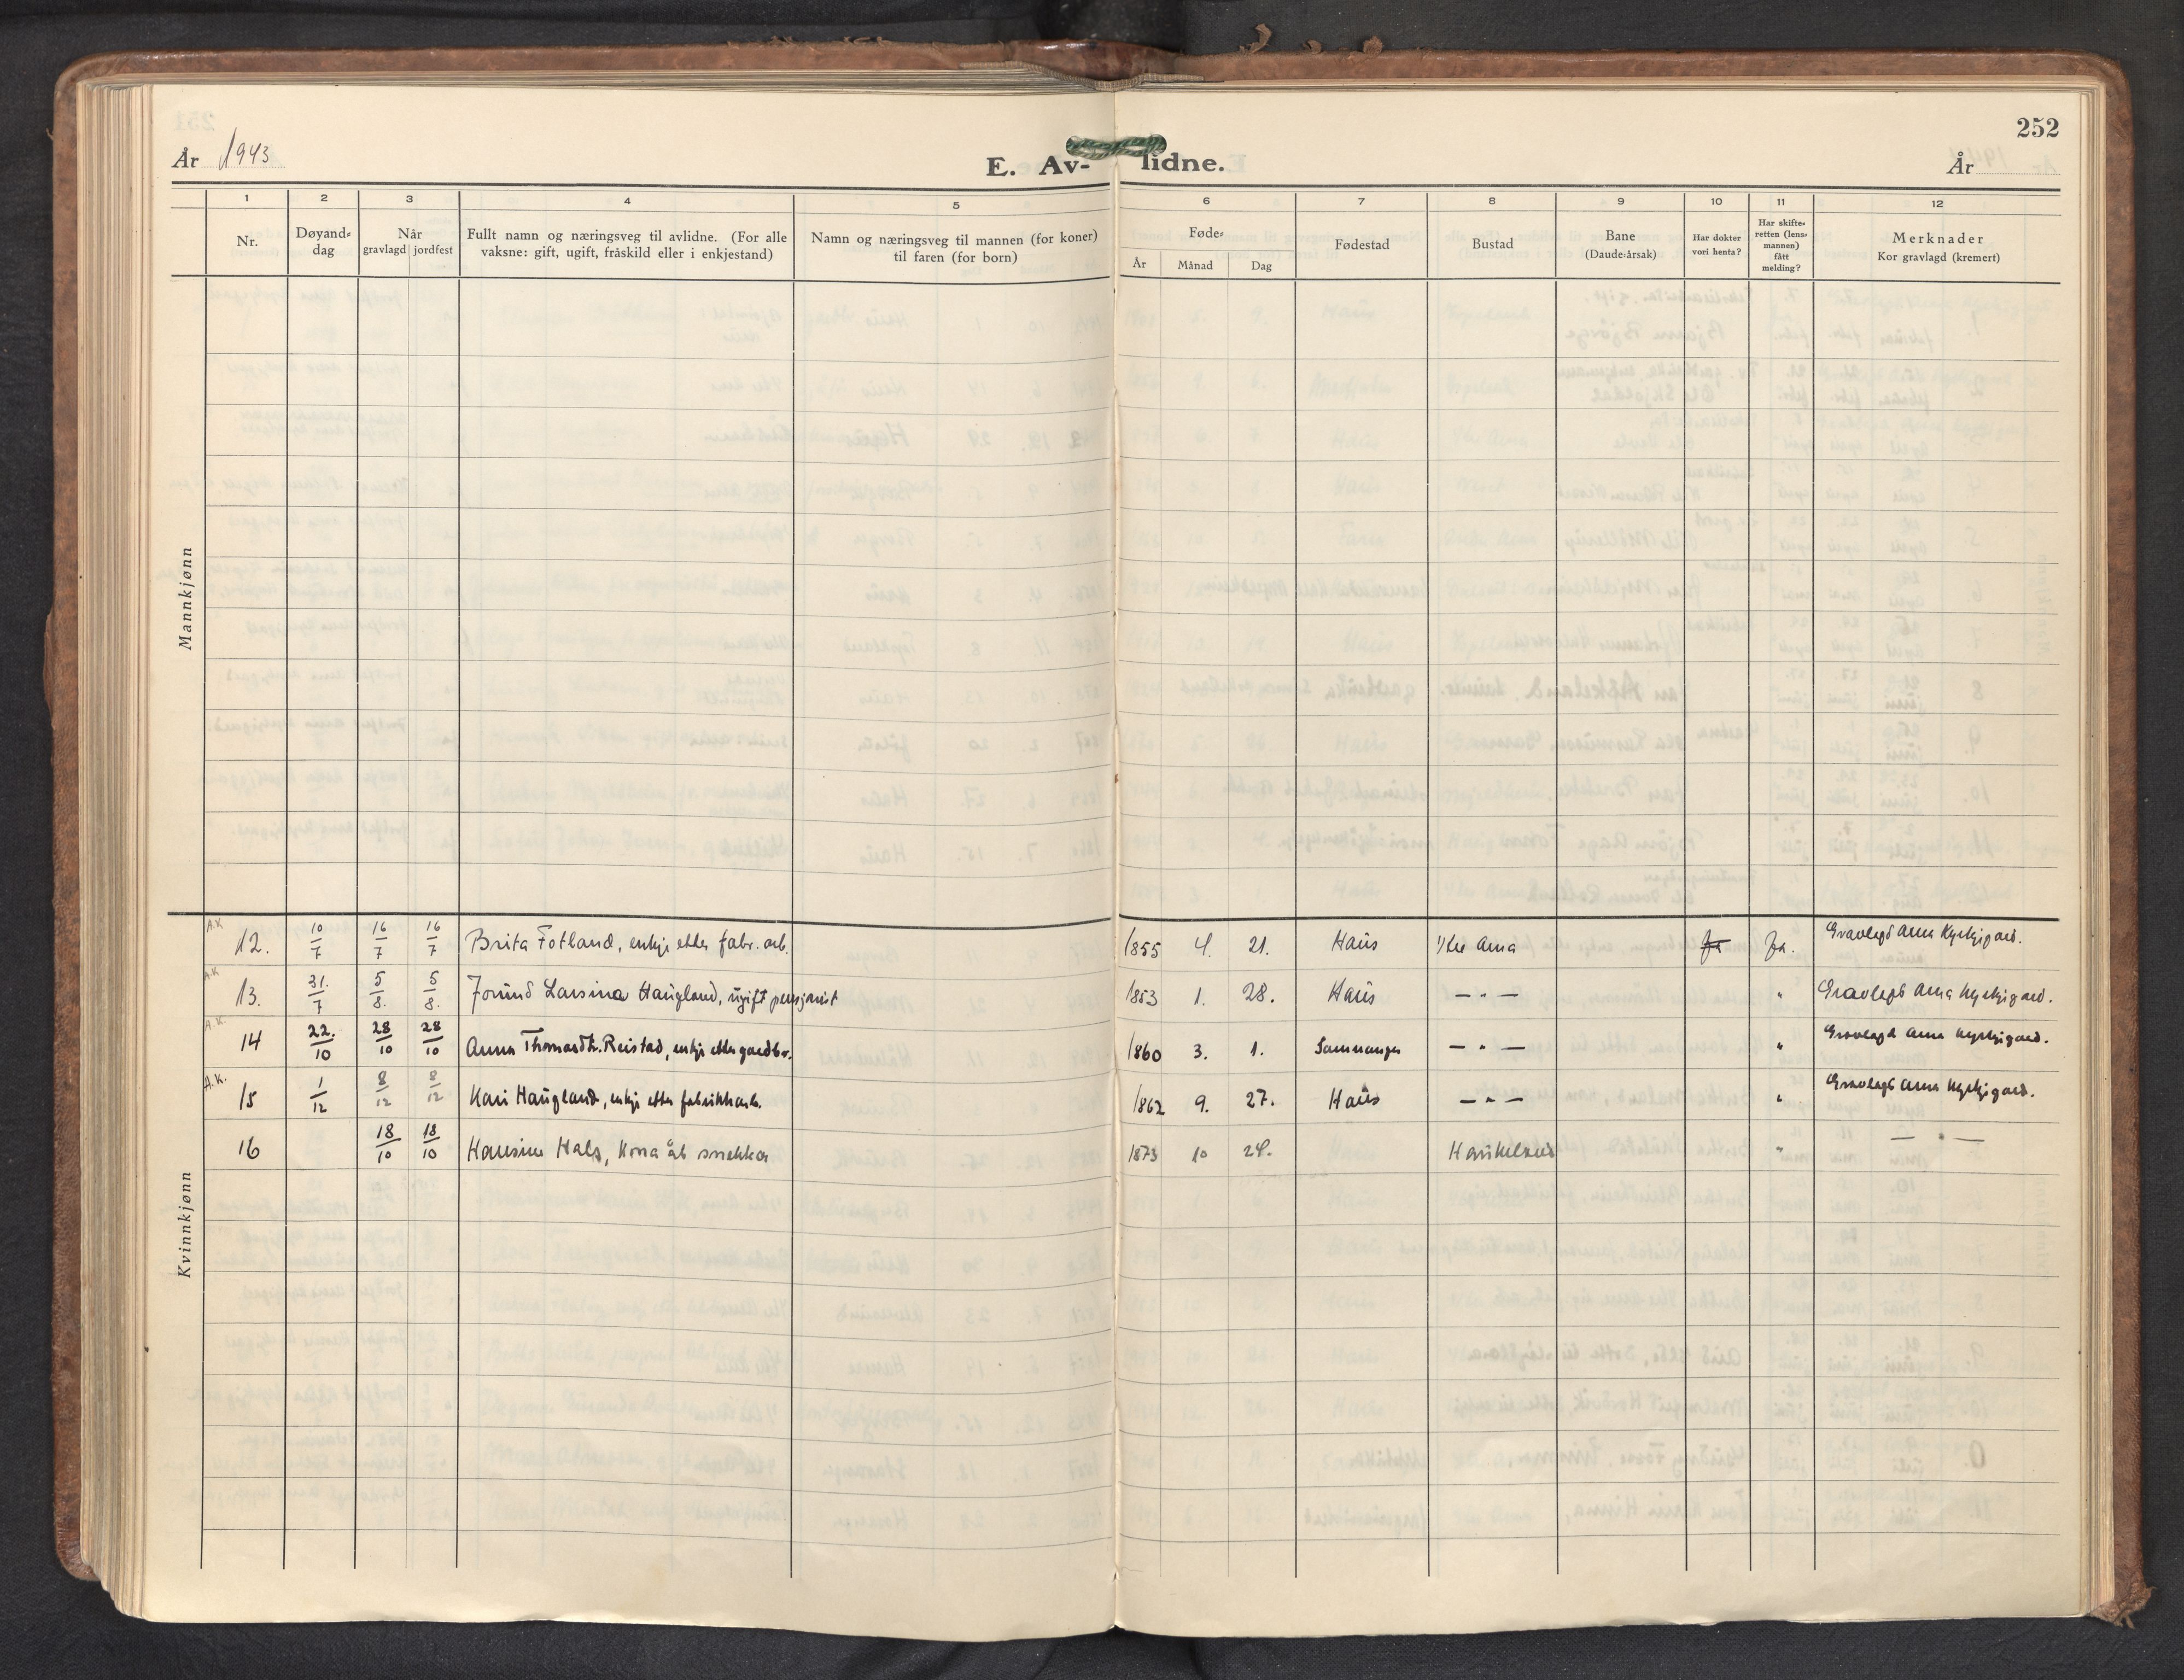 252
År 1943
E. Av-lidne.
År
1 2 3 4 5 6 7 8 9 10 11 12
Nr.
Døyand-
dag
Når
gravlagd jordfest
Fullt namn og næringsveg til avlidne. (For alle
vaksne: gift, ugift, fråskild eller i enkjestand)
Namn og næringsveg til mannen (for koner)
til faren (for born)
Føde-
År Månad Dag
Fødestad
Bustad
Bane
(Daude-årsak)
Har dokter
vori henta?
Har skifte-
retten (lens-
mannen)
fått
melding?
Merknader
Kor gravlagd (kremert)
Mannkjønn
Kvinnkjønn
A.K. 12. 10/7 16/7 16/7 Brita Fotland, enkje etter fabr. arb. 1855 4. 21. Haus Ytre Arna ja ja. Gravlagt Arna Kyrkjegard.
A.K. 13. 31./7 5/8. 5/8. Jorund Larsina Haugland, ugift pensjonist 1853 1. 28. Haus — " — " Gravlagt Arna Kyrkjegard.
A.K. 14 22./10 28/10 28/10 Anna Thomasdt. Reistad, enkje etter gardbr. 1860 3. 1. Samnanger — " — " Gravlagt Arna Kyrkjegard.
A.K. 15 1/12 8/12 8/12 Kari Haugland, enkje etter fabrikkarb. 1862 9. 27. Haus — " — " Gravlagt Arna Kyrkjegard.
16 18/10 18/10 Hansine Hals, Kona åt snekkar 1873 10 24. Haukeland " — " —